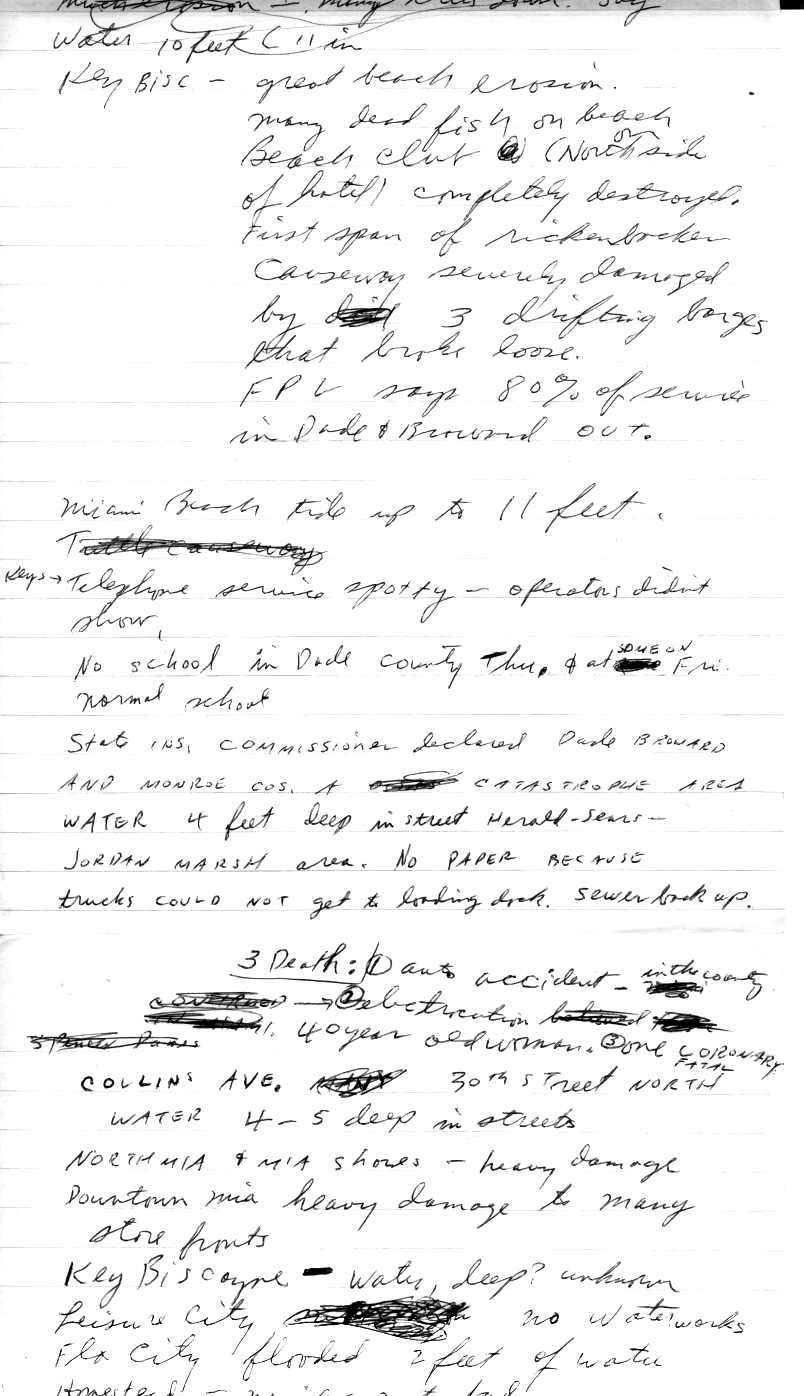 many trees down. Say
Water 10 feet ( 11 in
Key Bisc - great beach erosion.
many dead fish on beach
Beach club (North side or
of hotel) completely destroyed.
First span of rickenbacker
Causeway severely damaged
by 3 drifting barges
that broke loose.
FPL says 80% of service
in Dade & Broward OUT.
Miami Beach tide up to 11 feet.
Tuttle causeway
Keys → Telephone service spotty - operators didn't
show,
No school in Dade county Thu. & at SOME ON Fri.
normal school
State INS. COMMISSIONER declared Dade BROWARD
AND MONROE COS. A CATASTROPHE AREA
WATER 4 feet deep in street Herald-Sears-
JORDAN MARSH area. NO PAPER BECAUSE
trucks COULD NOT get to loading dock. Sewer back up.
3 Death: ① auto accident - in the county
→ ② electrocution believed
IN MIAMI. 40 year old woman. ③ one CORONARY
FATAL
COLLINS AVE. 30th STreet NORTH
WATER 4-5 deep in streets
NORTH MIA & MIA Shores - heavy damage
Downtown mia heavy damage to many
store fronts
Key Biscayne - water, deep? unknown
Leisure City no Waterworks
Fla City flooded 2 feet of water
Homestead -